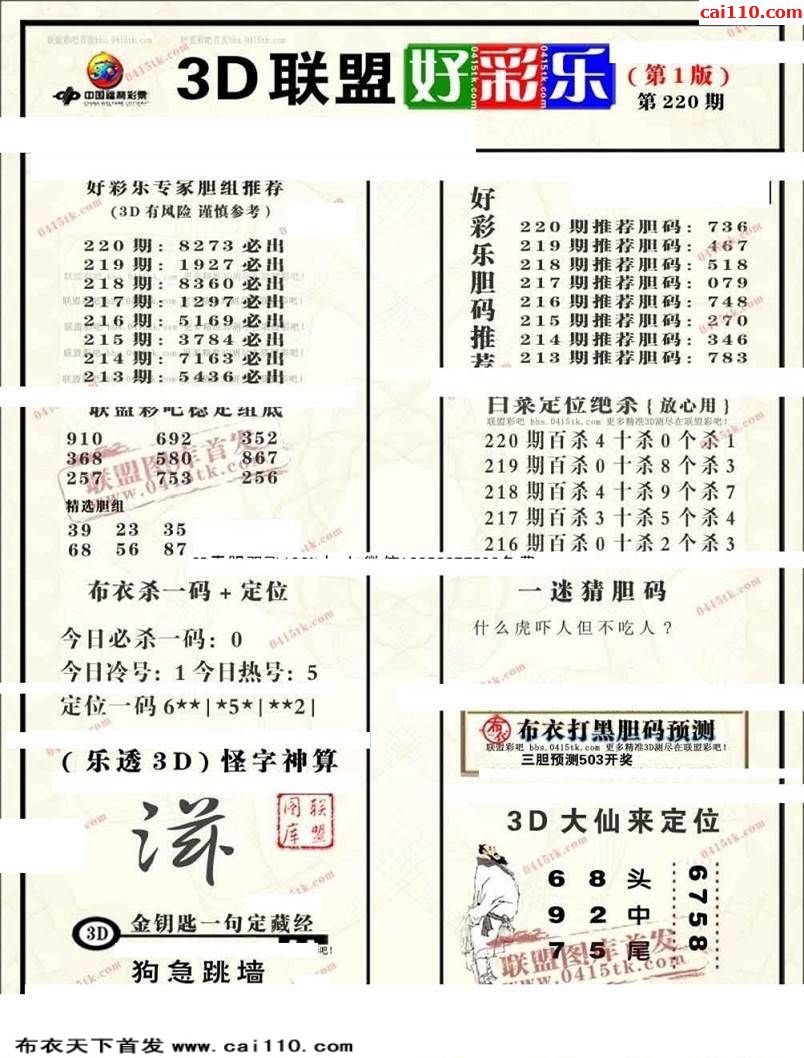 cai110.com
联盟彩吧首发bbs.0415tk.com 联盟彩吧首发bbs.0415tk.com
中国福利彩票
CHINA WELFARE LOTTERY
3D联盟好彩乐
(第1版)
第220期
好彩乐专家胆组推荐
(3D有风险 谨慎参考)
220期: 8273必出
219期: 1927必出
218期: 8360必出
217期: 1297必出
216期: 5169必出
215期: 3784必出
214期: 7163必出
213期: 5436必出
好彩乐胆码推荐
220期推荐胆码: 736
219期推荐胆码: 467
218期推荐胆码: 518
217期推荐胆码: 079
216期推荐胆码: 748
215期推荐胆码: 270
214期推荐胆码: 346
213期推荐胆码: 783
联盟彩吧稳定组底
910 692 352
368 580 867
257 753 256
精选胆组
39 23 35
68 56 87
白菜定位绝杀{放心用}
联盟彩吧 bbs.0415tk.com 更多精准3D测尽在联盟彩吧!
220期百杀4十杀0个杀1
219期百杀0十杀8个杀3
218期百杀4十杀9个杀7
217期百杀3十杀5个杀4
216期百杀0十杀2个杀3
布衣杀一码+定位
今日必杀一码: 0
今日冷号: 1 今日热号: 5
定位一码6**|*5*|**2|
一迷猜胆码
什么虎吓人但不吃人?
布衣打黑胆码预测
联盟彩吧 bbs.0415tk.com 更多精准3D测尽在联盟彩吧!
三胆预测503开奖
(乐透3D)怪字神算
联盟图库
3D 金钥匙一句定藏经
狗急跳墙
3D大仙来定位
6 8 头
9 2 中
7 5 尾
6758
联盟图库首发
www.0415tk.com
布衣天下首发 www.cai110.com